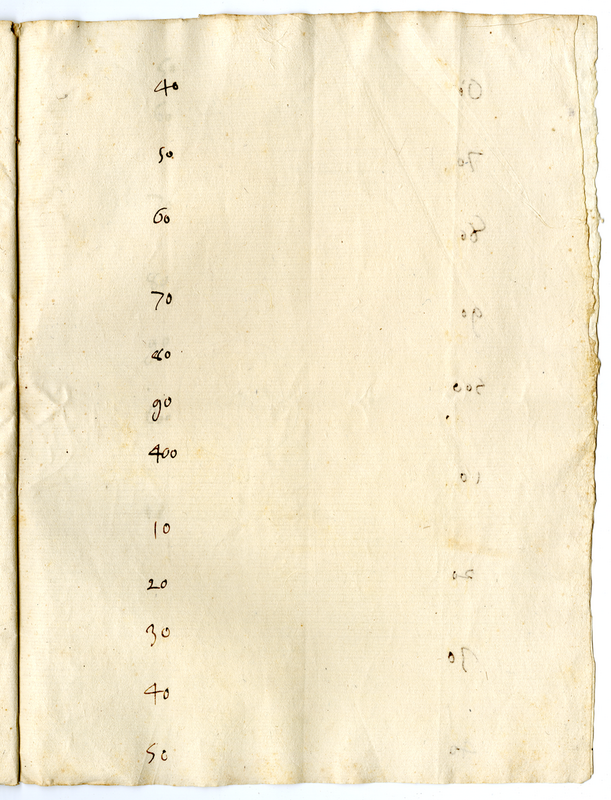 40
50
60
70
80
90
400
10
20
30
40
50